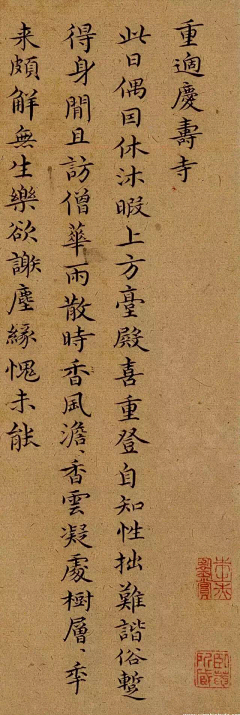 重適慶壽寺
此日偶囙休沐暇上方臺殿喜重登自知性拙難諧俗蹔
得身閒且訪僧華雨散時香風澹〻香雲凝處樹層〻年
来頗解無生樂欲謝塵緣愧未能